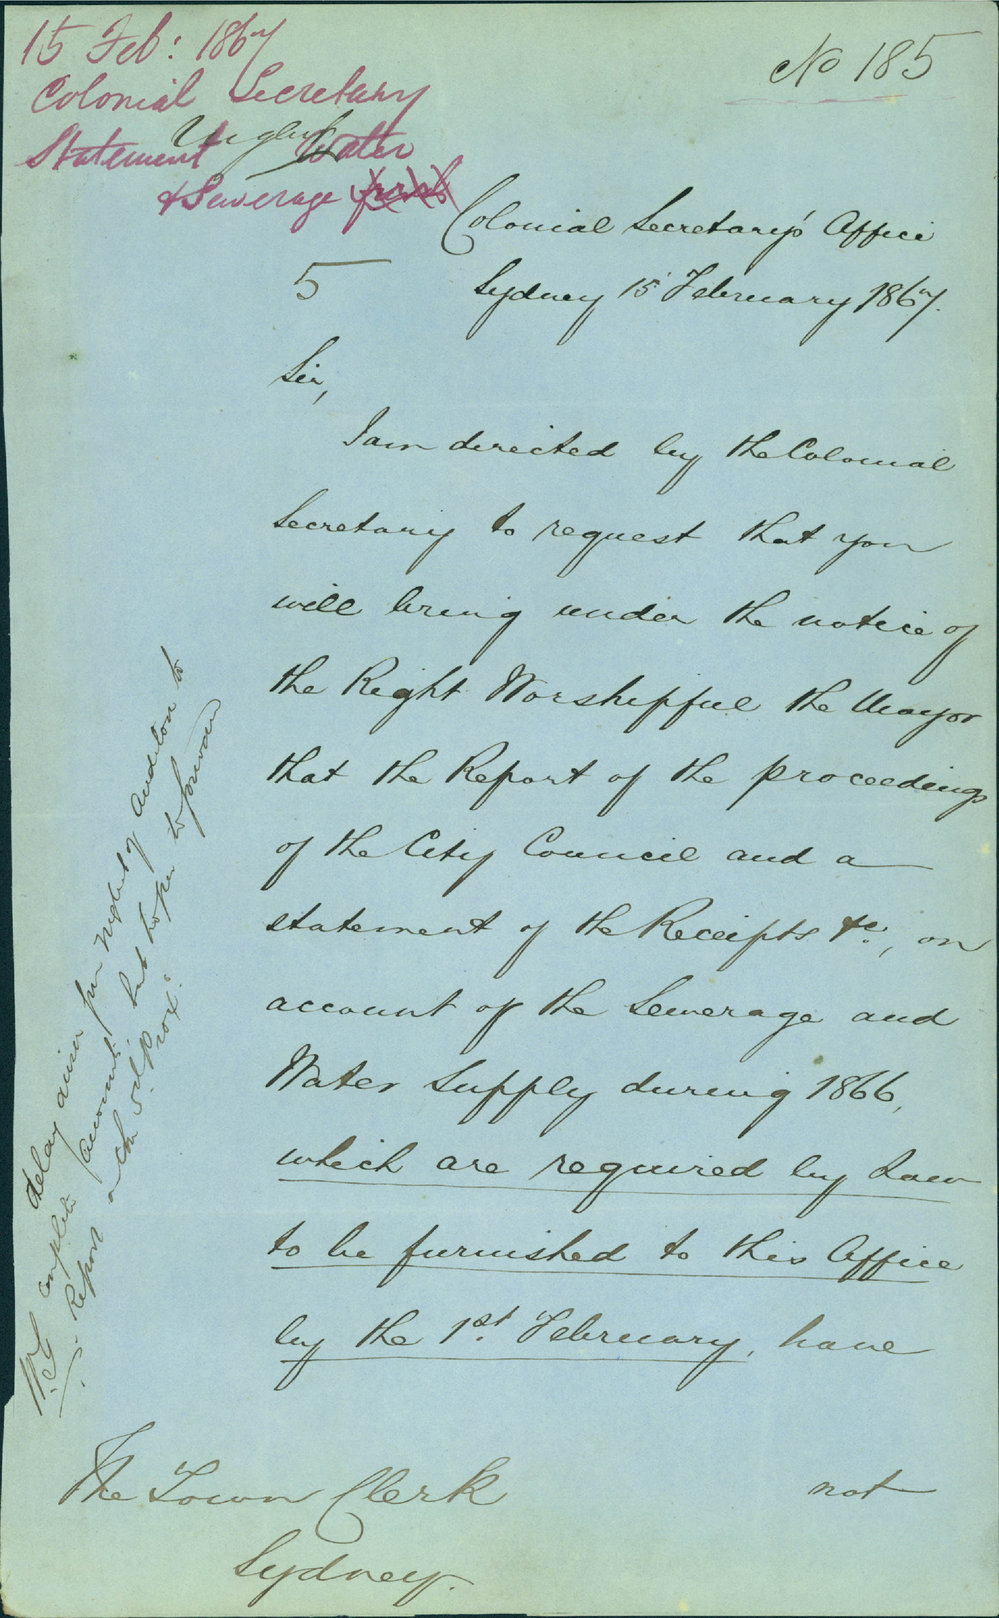 15 Feb: 1867
Colonial Secretary
Statement Water
& Sewerage
No 185
Colonial Secretary's Office
5
Sydney 15 February 1867.
Sir,
I am directed by the Colonial
Secretary to request that you
will bring under the notice of
the Right Worshipful the Mayor
that the Report of the proceedings
of the City Council and a
statement of the Receipts &c:, on
account of the Sewerage and
Water Supply during 1866,
which are required by Law
to be furnished to this Office
by the 1st. February, have
not
The Town Clerk
Sydney.
delay arises from neglect of Auditors to
complete accounts, but hopes to forward
Report on the 5th Prox: